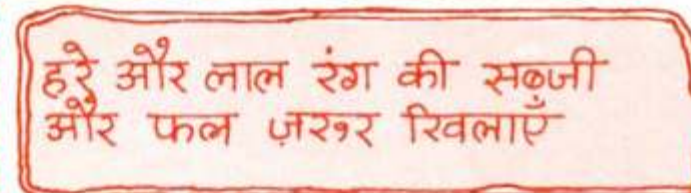 हरे और लाल रंग की सब्जी
और फल ज़रूर खिलाएँ